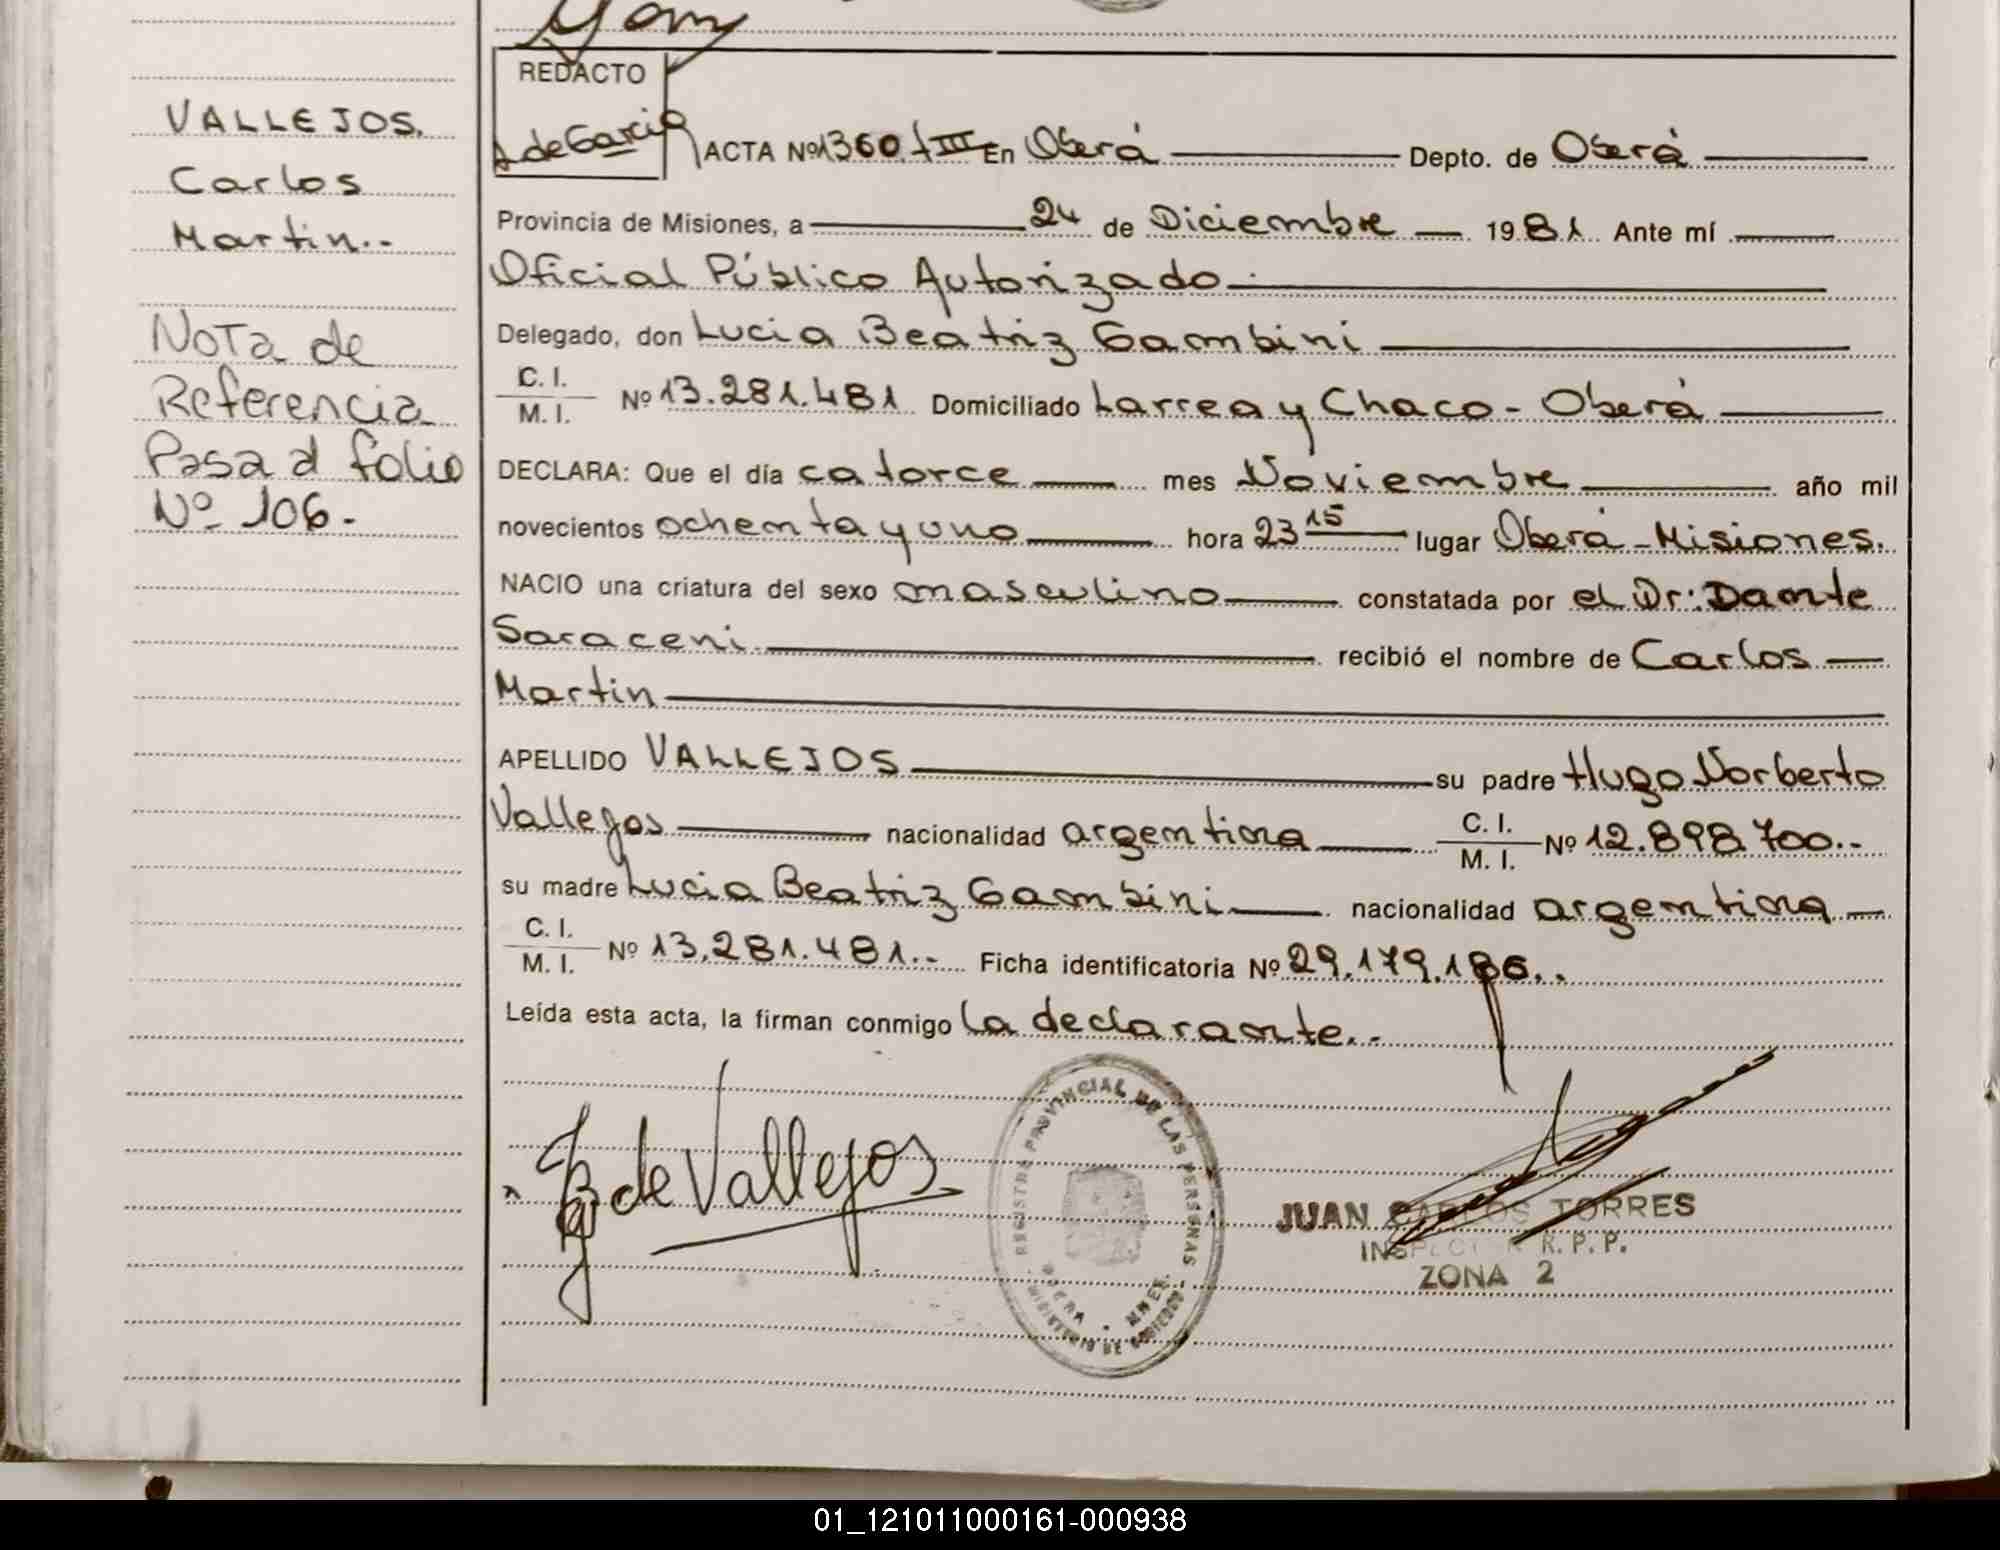 REDACTO
VALLEJOS.
Carlos
Martin..
Nota de
Referencia
Pasa al folio
Nº 106.-
A de Garcia
ACTA Nº 1360. tIII En Oberá Depto. de Oberá
Provincia de Misiones, a 24 de Diciembre 1981 Ante mí
Oficial Público Autorizado.
Delegado, don Lucia Beatriz Gambini
C. I.
M. I. Nº 13.281.481 Domiciliado Larrea y Chaco - Oberá
DECLARA: Que el día catorce mes Noviembre año mil
novecientos ochenta y uno hora 23 15 lugar Oberá - Misiones.
NACIO una criatura del sexo masculino constatada por el Dr: Dante
Saraceni. recibió el nombre de Carlos
Martin
APELLIDO VALLEJOS su padre Hugo Norberto
Vallejos nacionalidad argentina C. I.
M. I. Nº 12.898.700..
su madre Lucia Beatriz Gambini nacionalidad argentina
C. I.
M. I. Nº 13.281.481.- Ficha identificatoria Nº 29.179.186..
Leída esta acta, la firman conmigo la declarante..
de Vallejos
REGISTRO PROVINCIAL DE LAS PERSONAS
OBERA
MINISTERIO DE GOBIERNO
JUAN CARLOS TORRES
INSPECTOR R. P. P.
ZONA 2
01_121011000161-000938